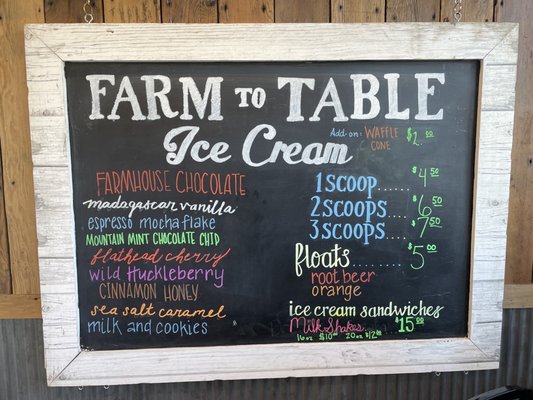 FARM TO TABLE
Ice Cream
Add-on: WAFFLE CONE $2.00
FARMHOUSE CHOCOLATE
madagascar vanilla
espresso mocha flake
MOUNTAIN MINT CHOCOLATE CHIP
flathead cherry
wild Huckleberry
CINNAMON HONEY
sea salt caramel
milk and cookies
1 SCOOP..... $4.50
2 SCOOPS..... $6.50
3 SCOOPS..... $7.50
floats............ $5.00
root beer
orange
ice cream sandwiches
Milk Shakes........ $15.00
16oz $10.00 20oz $12.00